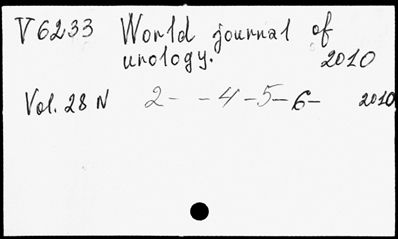 V6233 World journal of
urology. 2010
Vol. 28 N 2- -4-5-6- 2010